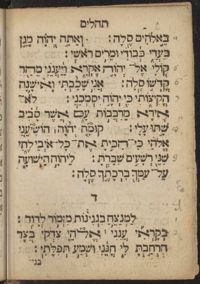 תהלים
באלהים סלה: ואתה יהוה מגן
בעדי כבודי ומרים ראשי:
קולי אל־יהוה אקרא ויענני מהר
קדשו סלה: אני שכבתי ואישנה
הקיצותי כי יהוה יסמכני: לא־
אירא מרבבות עם אשר סביב
שתו עלי: קומה יהוה הושיעני
אלהי כי־הכית את־כל־איבי לחי
שני רשעים שברת: ליהוה הישועה
על־עמך ברכתך סלה:
ד
למנצח בנגינות מזמור לדוד:
בקראי ענני אלהי צדקי בצר
הרחבת לי חנני ושמע תפלתי:
בני